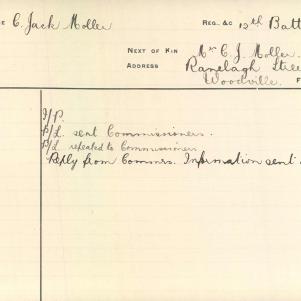 C. Jack Moller REG. &C 12th Batt
NEXT OF KIN Mr C. J. Moller.
ADDRESS Ranelagh Stree
Woodville. F
I/P.
P/L sent Commissioners.
P/L repeated to Commissioners
Reply from Commrs. Information sent